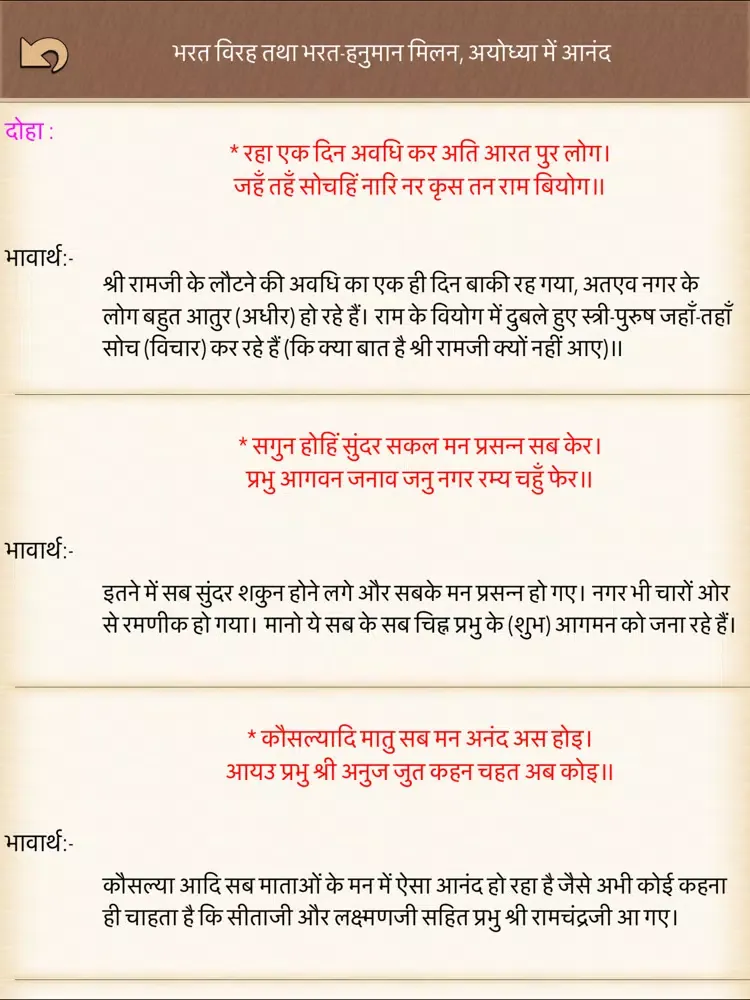 भरत विरह तथा भरत-हनुमान मिलन, अयोध्या में आनंद
दोहा :
* रहा एक दिन अवधि कर अति आरत पुर लोग।
जहँ तहँ सोचहिं नारि नर कृस तन राम बियोग॥
भावार्थ:-
श्री रामजी के लौटने की अवधि का एक ही दिन बाकी रह गया, अतएव नगर के
लोग बहुत आतुर (अधीर) हो रहे हैं। राम के वियोग में दुबले हुए स्त्री-पुरुष जहाँ-तहाँ
सोच (विचार) कर रहे हैं (कि क्या बात है श्री रामजी क्यों नहीं आए)॥
* सगुन होहिं सुंदर सकल मन प्रसन्न सब केर।
प्रभु आगवन जनाव जनु नगर रम्य चहुँ फेर॥
भावार्थ:-
इतने में सब सुंदर शकुन होने लगे और सबके मन प्रसन्न हो गए। नगर भी चारों ओर
से रमणीक हो गया। मानो ये सब के सब चिह्न प्रभु के (शुभ) आगमन को जना रहे हैं।
* कौसल्यादि मातु सब मन अनंद अस होइ।
आयउ प्रभु श्री अनुज जुत कहन चहत अब कोइ॥
भावार्थ:-
कौसल्या आदि सब माताओं के मन में ऐसा आनंद हो रहा है जैसे अभी कोई कहना
ही चाहता है कि सीताजी और लक्ष्मणजी सहित प्रभु श्री रामचंद्रजी आ गए।